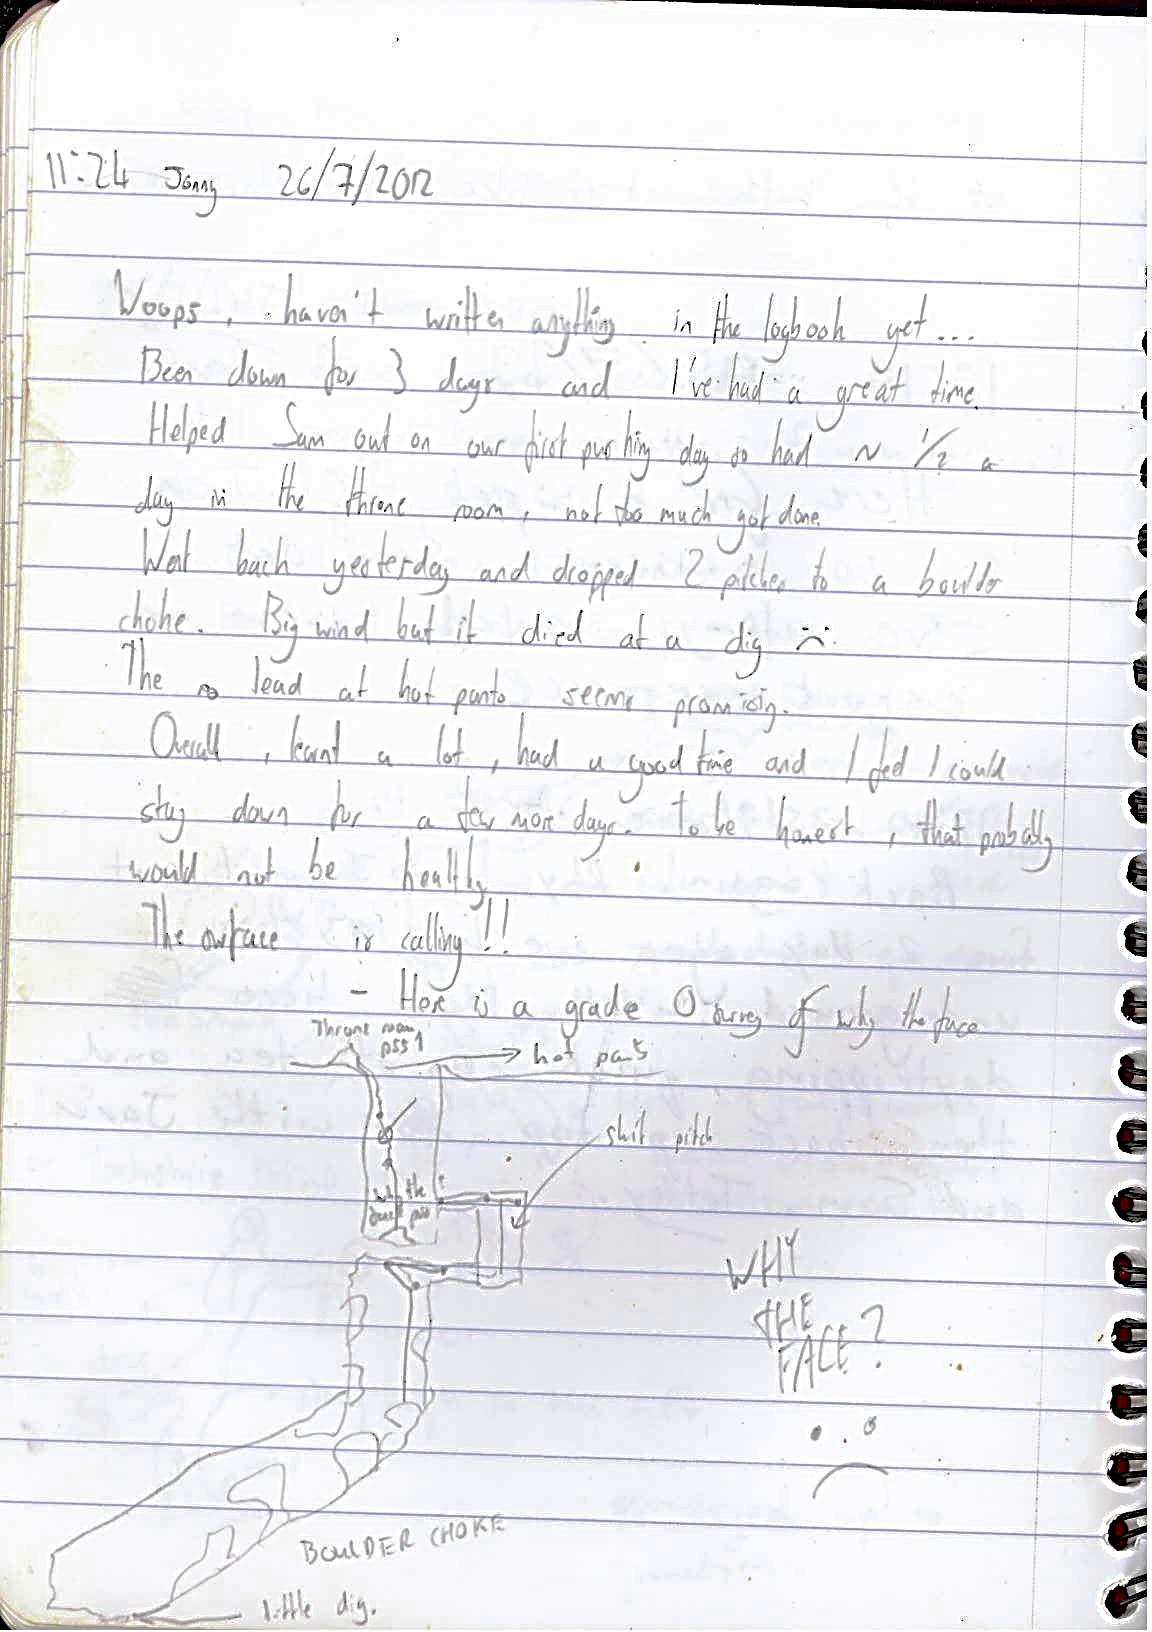 11:24 Jonny 26/7/2012
Woops, haven't written anything in the logbook yet...
Been down for 3 days and I've had a great time.
Helped Sam out on our first pushing day so had ~ 1/2 a
day in the throne room, not too much got done.
Went back yesterday and dropped 2 pitches to a boulder
choke. Big wind but it died at a dig :(
The lead at hot pants seems promising.
Overall, learnt a lot, had a good time and I feel I could
stay down for a few more days. to be honest, that probably
would not be healthy
The surface is calling!!
- Here is a grade 0 survey of why the face
Throne room
pss1
hot pants
shit pitch
the
WHY
THE
FACE?
BOULDER CHOKE
little dig.